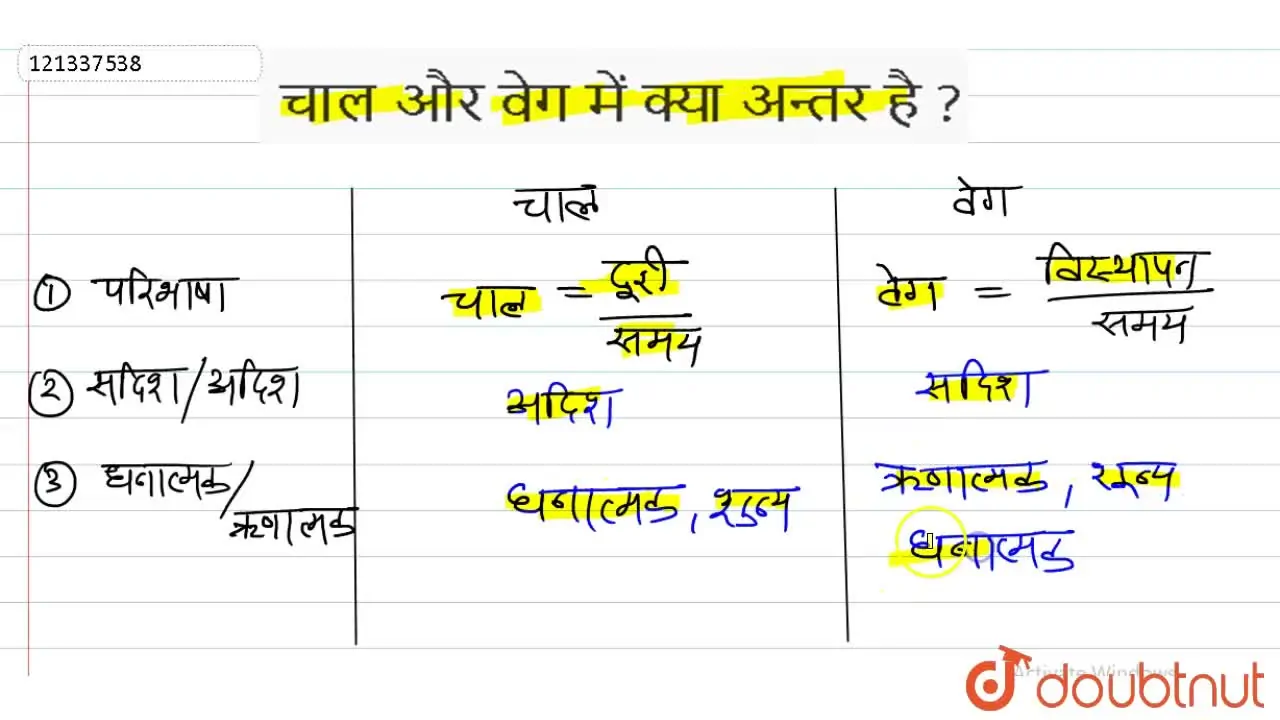 121337538
चाल और वेग में क्या अन्तर है ?
चाल वेग
① परिभाषा चाल = दूरी / समय वेग = विस्थापन / समय
② सदिश/अदिश अदिश सदिश
③ धनात्मक/ऋणात्मक धनात्मक, शून्य ऋणात्मक, शून्य
धनात्मक
Activate Windows
doubtnut